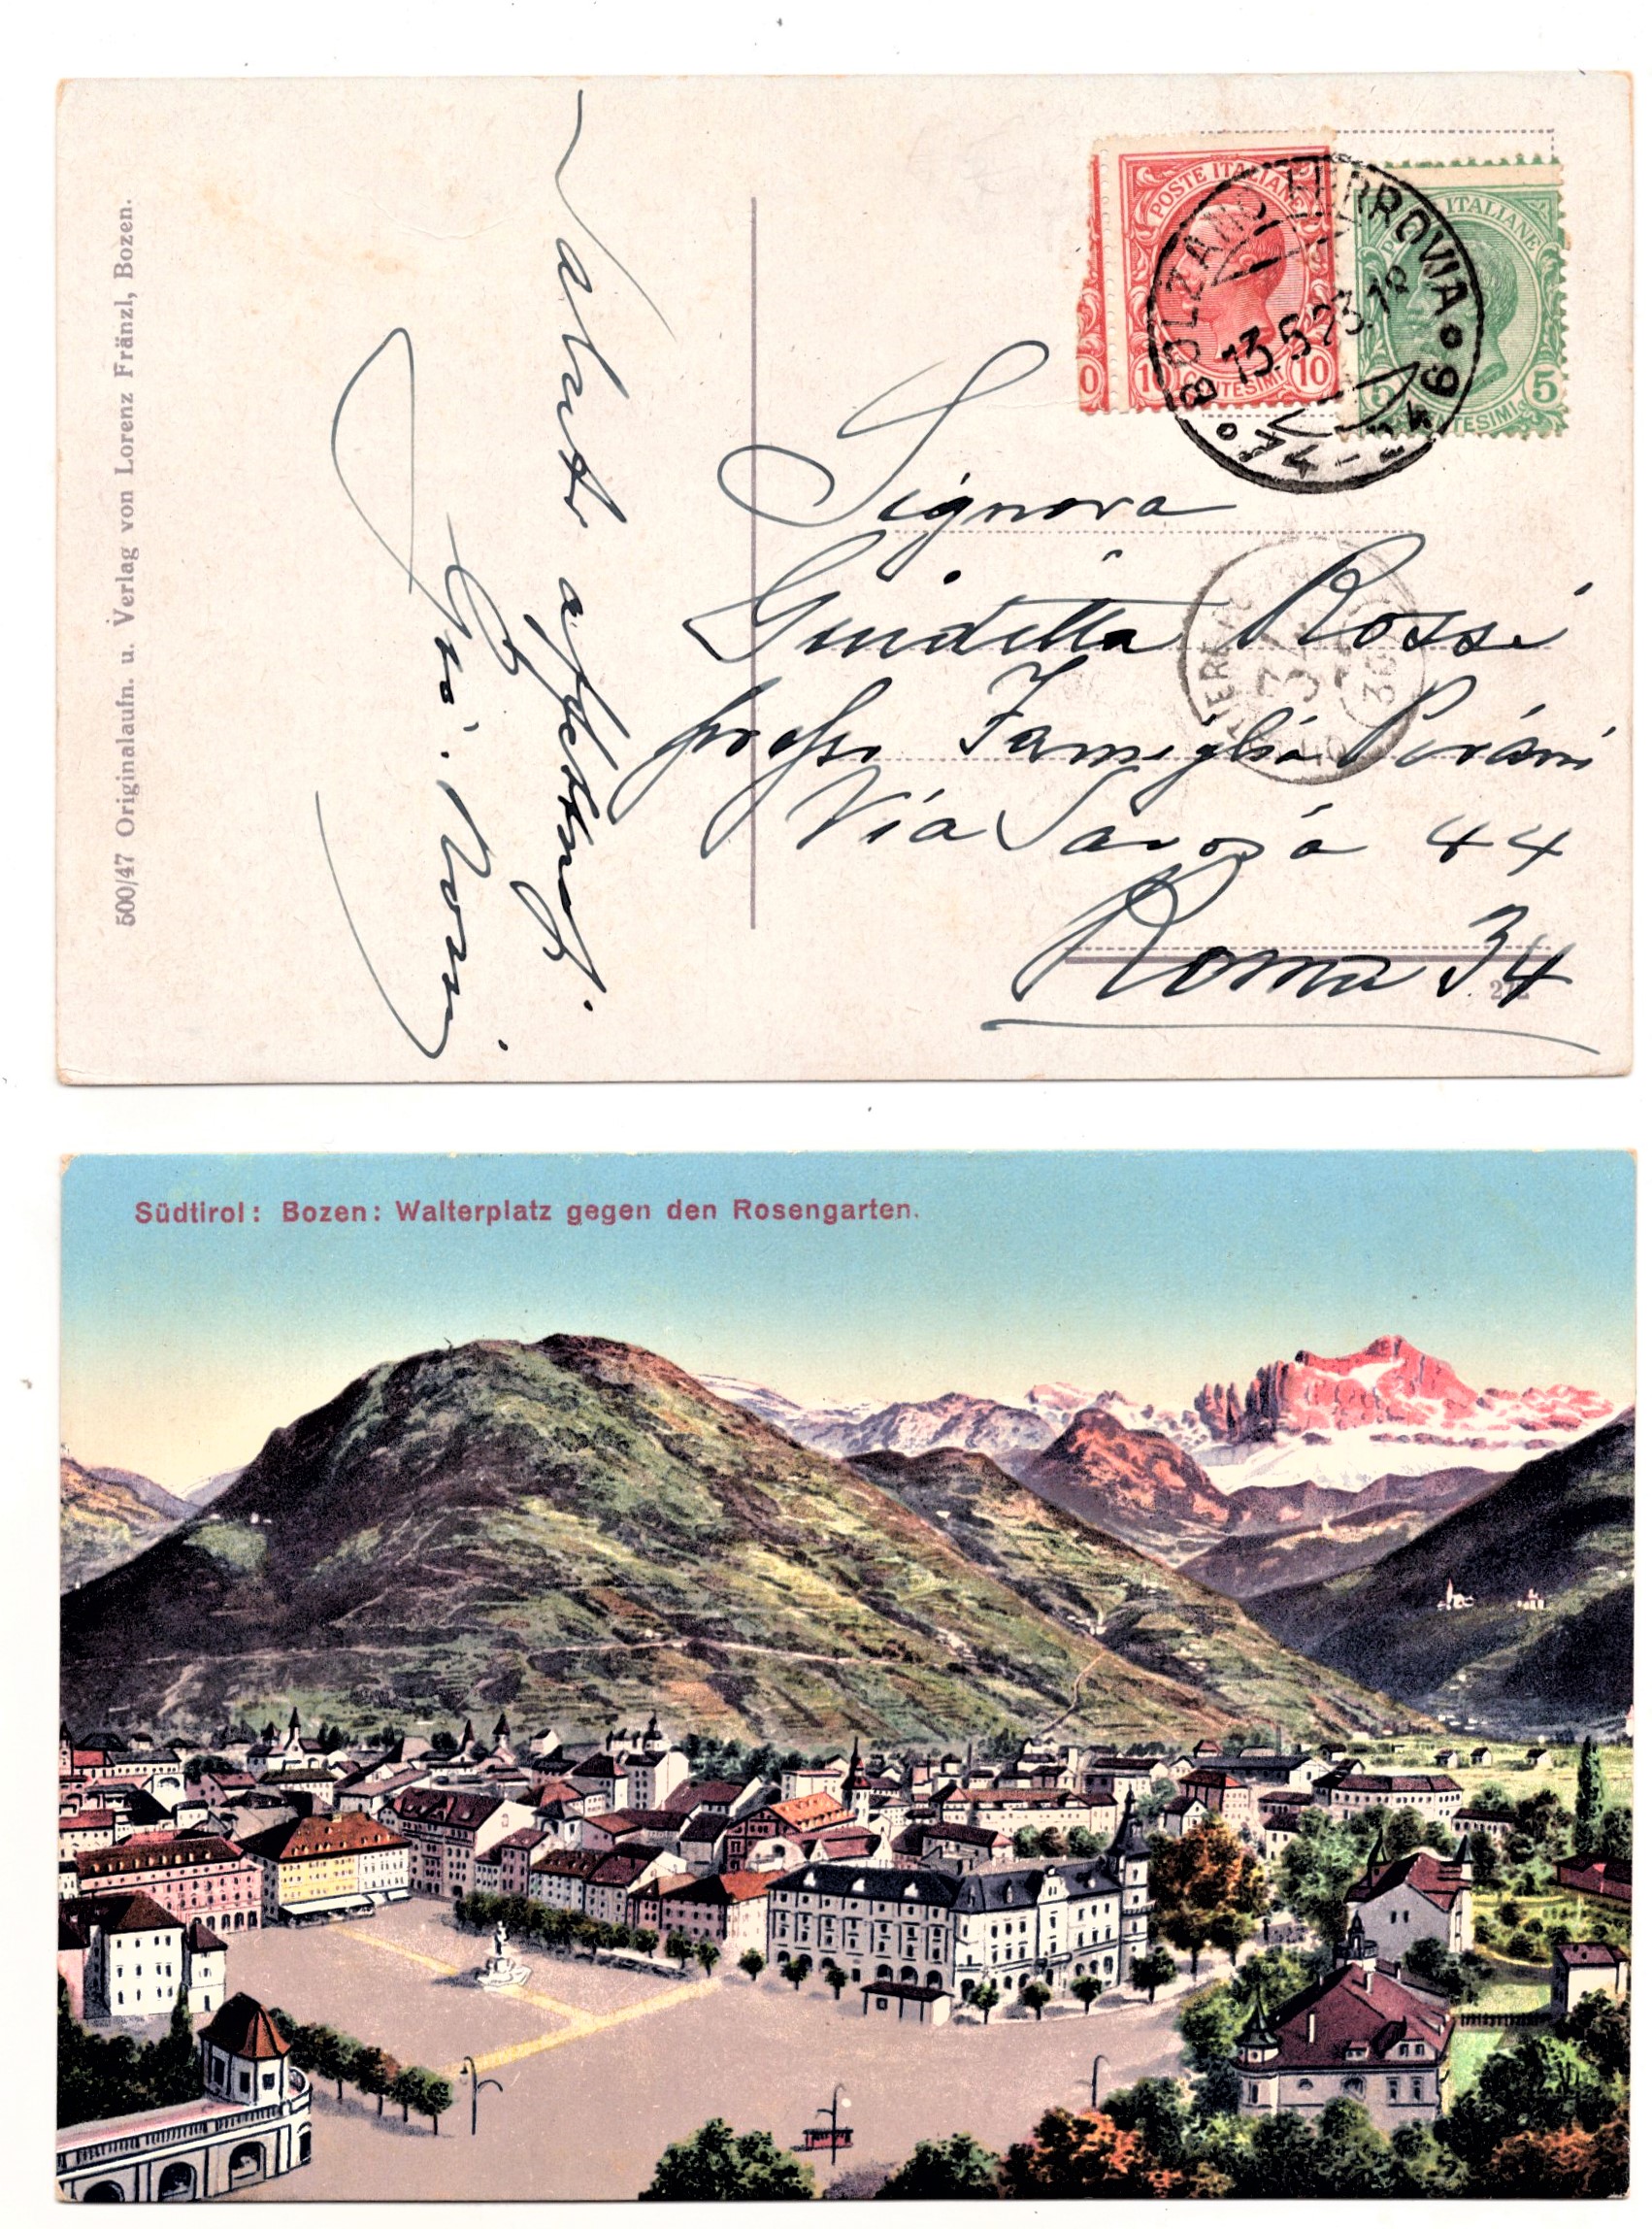 500/47 Originalaufn. u. Verlag von Lorenz Fränzl, Bozen.
Saluti affettuosi.
Rossi
POSTE ITALIANE
10 CENTESIMI 10
POSTE ITALIANE
5 CENTESIMI 5
BOLZANO FERROVIA
13.5.23.18
Signora
Giuditta Rossi
presso Famiglia
Via Savoia 44
Roma 34
212
Südtirol: Bozen: Walterplatz gegen den Rosengarten.